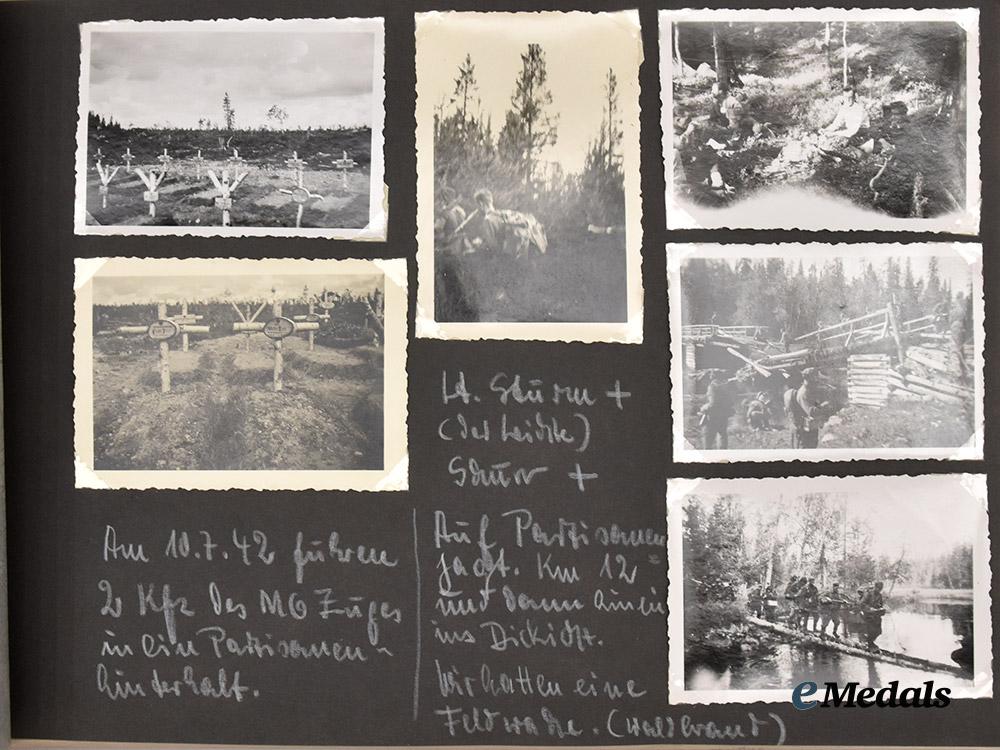 Lt. Sturm +
(der leichte)
Schurr +
Am 10.7.42 fuhren
2 Kfz des MG Zuges
in ein Partisanen-
hinterhalt.
Auf Partisanen
jagt. Km 12
und dann hinein
ins Dickicht.
Wir hatten eine
Feldwache. (Waldbrand)
eMedals